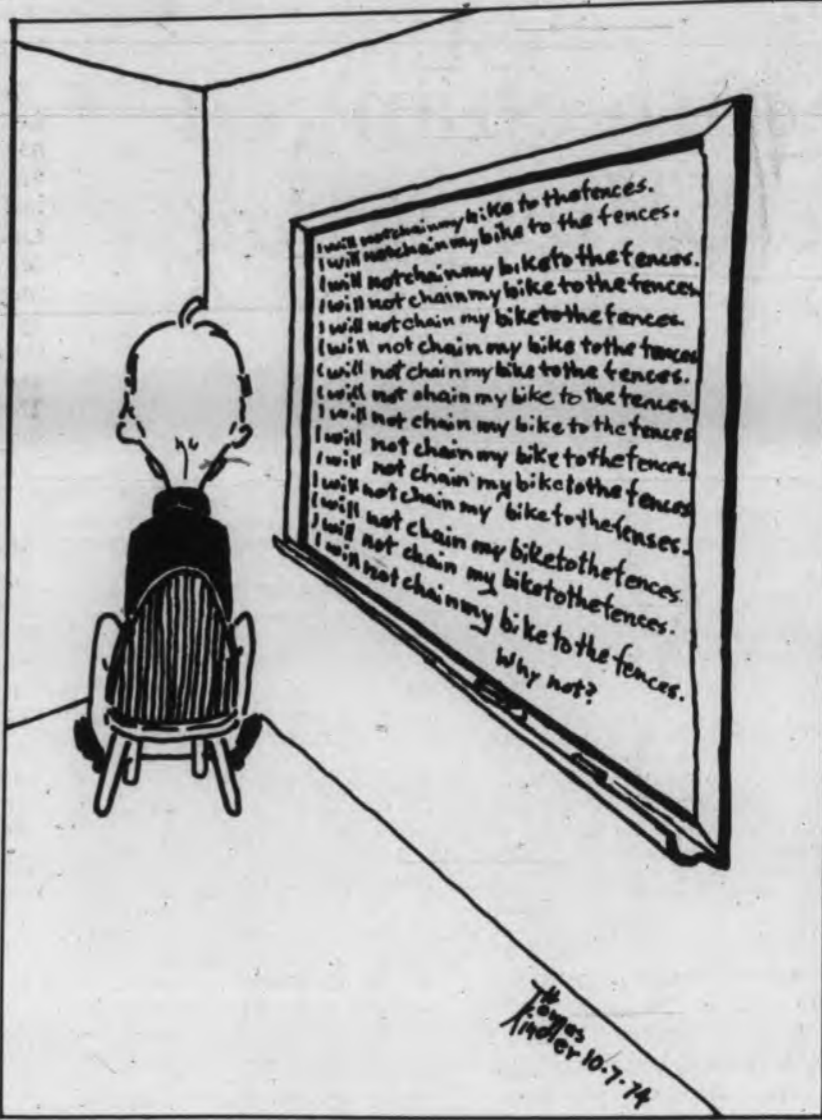 I will not chain my bike to the fences.
I will not chain my bike to the fences.
I will not chain my bike to the fences.
I will not chain my bike to the fences
I will not chain my bike to the fences.
I will not chain my bike to the fences
I will not chain my bike to the fences.
I will not chain my bike to the fences.
I will not chain my bike to the fences
I will not chain my bike to the fences.
I will not chain my bike to the fences
I will not chain my bike to the fenses.
I will not chain my bike to the fences.
I will not chain my bike to the fences.
I will not chain my bike to the fences.
Why not?
10-7-74